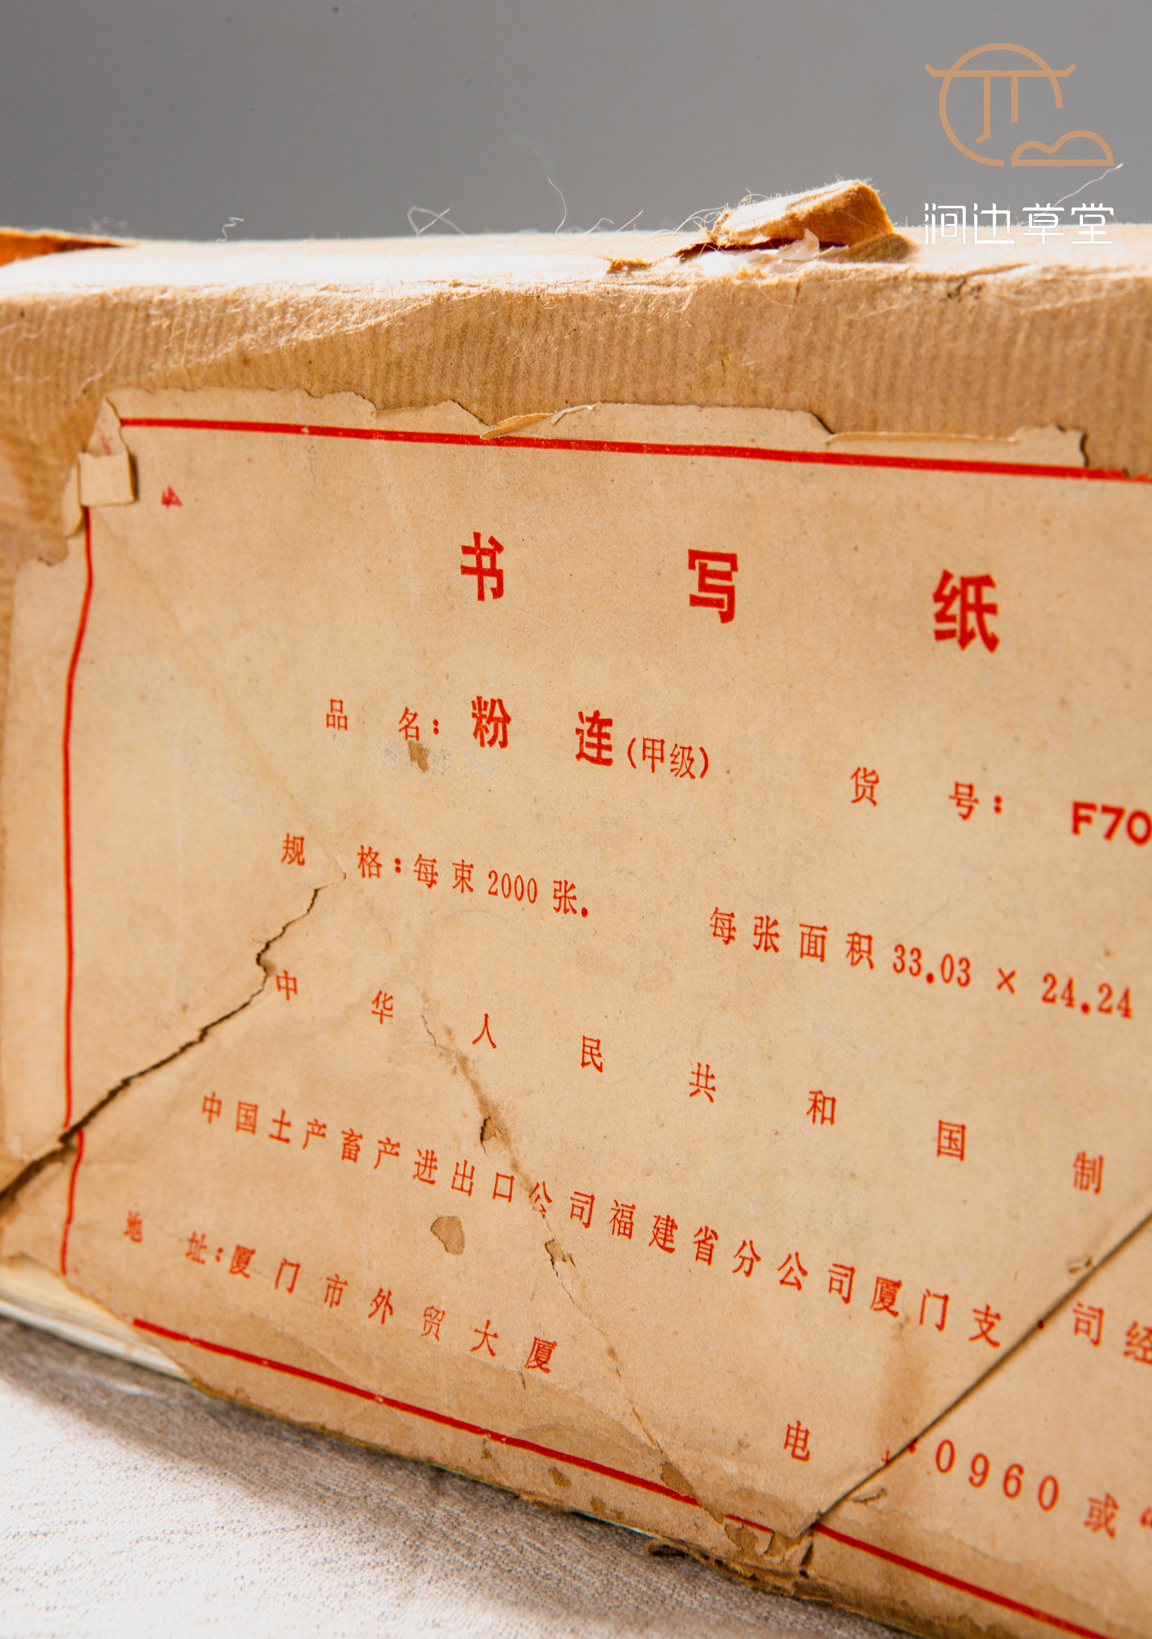 涧边草堂
4
书写纸
品名：粉连(甲级) 货号：F70
规格：每束2000张. 每张面积33.03 × 24.24
中华人民共和国制
中国土产畜产进出口公司福建省分公司厦门支 司经
地址：厦门市外贸大厦
电 0960或“